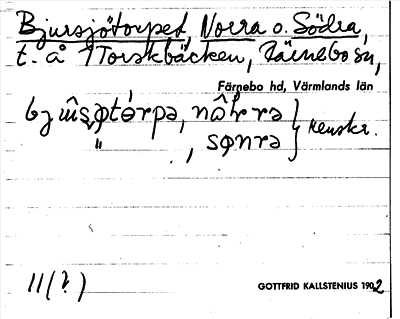 Bjursjötorpet, Norra o. Södra,
t. å Torskbäcken, Färnebo sn,
Färnebo hd, Värmlands län
nö̂rra } kenskr.
" , sønra
11(?)
GOTTFRID KALLSTENIUS 1902